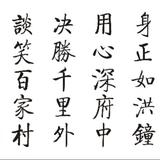 身正如洪鐘
用心深府中
决勝千里外
談笑百家村